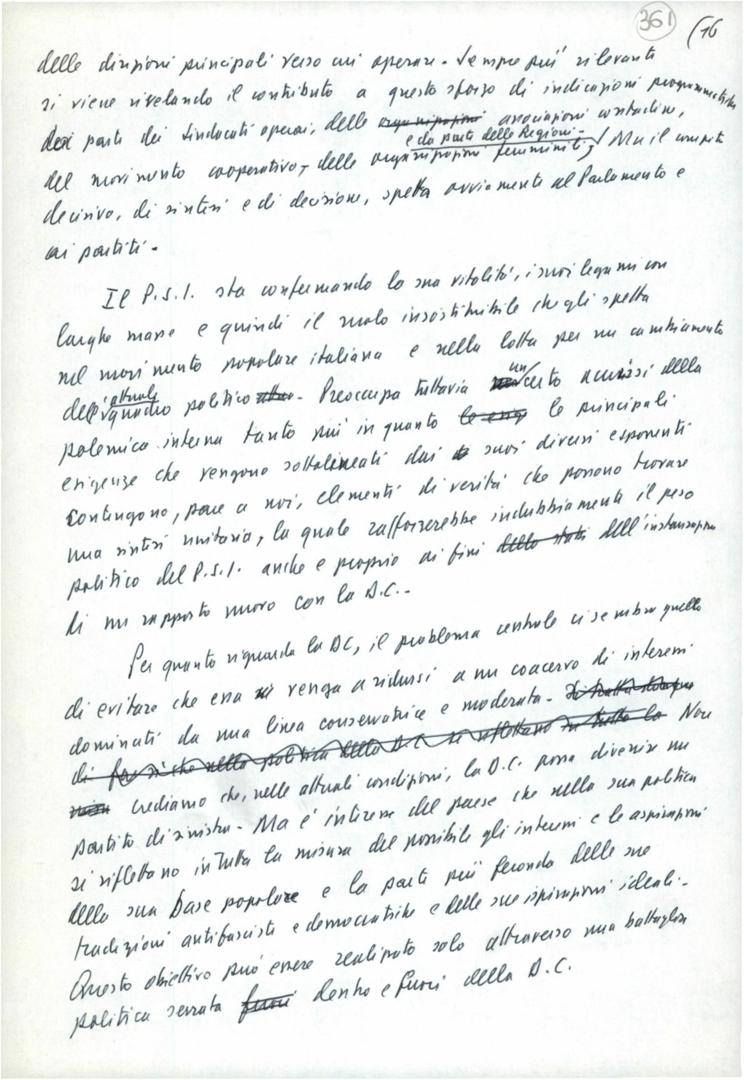 361 (16
delle direzioni principali verso cui operare. Sempre più rilevante
si viene rivelando il contributo a questo sforzo di indicazioni programmatiche
da parte dei sindacati operai, delle organizzazioni associazioni contadine,
e da parte delle Regioni.
del movimento cooperativo, delle organizzazioni femminili, Ma il compito
decisivo, di sintesi e di decisione, spetta ovviamente al Parlamento e
ai partiti.
Il P.S.I. sta confermando la sua vitalità, i suoi legami con
larghe masse e quindi il ruolo insostituibile che gli spetta
nel movimento popolare italiano e nella lotta per un cambiamento
attuale un
dell' quadro politico. Preoccupa tuttavia certo acuirsi della
polemica interna tanto più in quanto le esig le principali
esigenze che vengono sottolineate dai suoi diversi esponenti
contengono, pare a noi, elementi di verità che possono trovare
una sintesi unitaria, la quale rafforzerebbe indubbiamente il peso
politico del P.S.I. anche e proprio ai fini dello stato dell'instaurazione
di un rapporto nuovo con la D.C.
Per quanto riguarda la DC, il problema centrale ci sembra quello
di evitare che essa si venga a ridursi a un coacervo di interessi
dominati da una linea conservatrice e moderata. Si tratta dunque
di far sì che nella politica della D.C. si riflettano in tutta la Noi
crediamo che, nelle attuali condizioni, la D.C. possa divenire un
partito di sinistra. Ma è interesse del paese che nella sua politica
si riflettano in tutta la misura del possibile gli interessi e le aspirazioni
della sua base popolare e la parte più feconda delle sue
tradizioni antifasciste e democratiche e delle sue ispirazioni ideali.
Questo obiettivo può essere realizzato solo attraverso una battaglia
politica serrata fuori dentro e fuori della D.C.